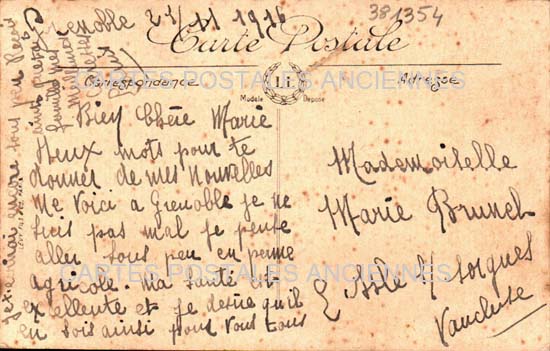 Grenoble 21/11 1916
381354
Carte Postale
Correspondance
Adresse
Li.
Modèle Déposé
CARTES POSTALES ANCIENNES
Bien Chère Marie
Deux mots pour te
donner de mes Nouvelles
Me voici a Grenoble je ne
suis pas mal je pense
aller sous peu en perme
agricole. Ma santé est
excellente et je desire qu'il
en soit ainsi pour vous tous
ainsi
famille
Meilleurs
CARTES POSTALES ANCIENNES
Mademoiselle
Marie Brunel
Isle s/ sorgues
Vaucluse